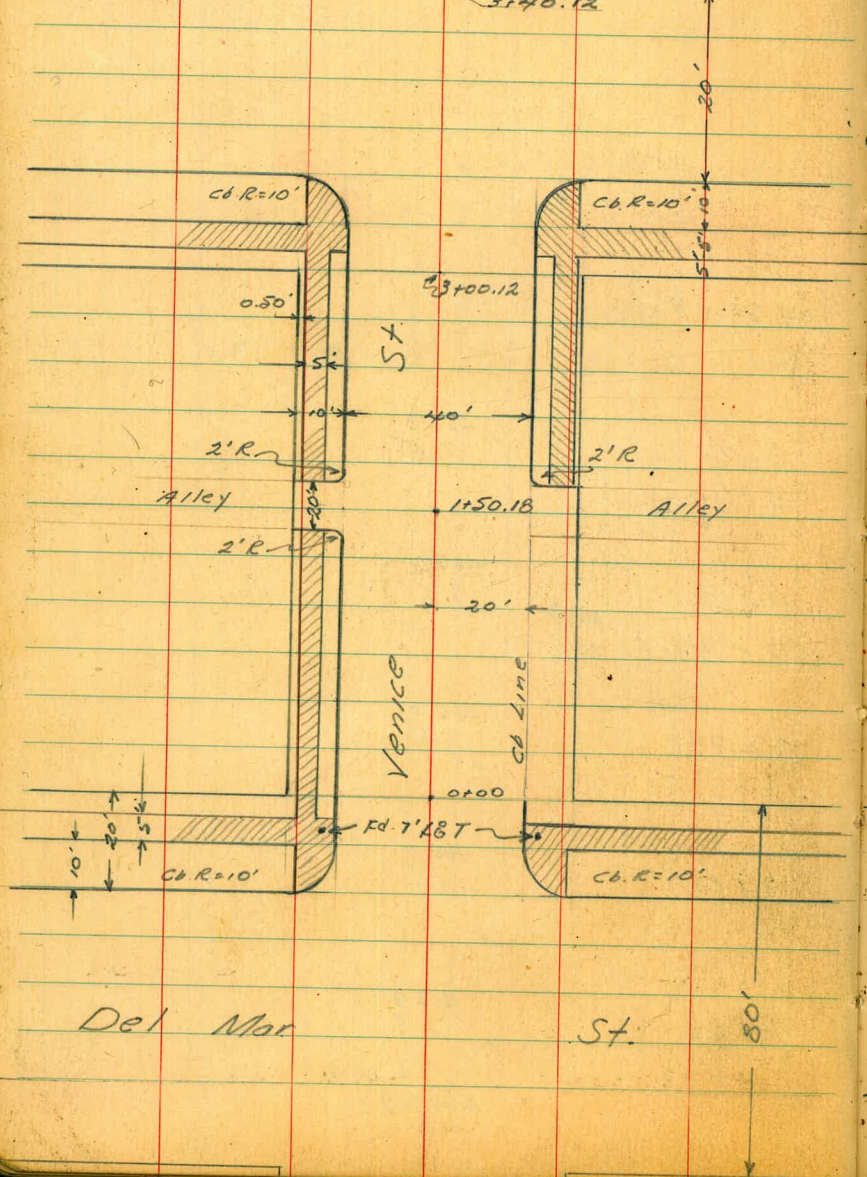 3+40.12
20'
Cb R=10'
Cb. R=10'
10'
5'
5'
3+00.12
0.50'
St.
5'
10'
40'
2' R
2' R
Alley
20'
1+50.18
Alley
2' R
20'
Venice
Cb Line
0+00
5'
20'
10'
Fd. 7' L&T
Cb. R=10'
Cb. R=10'
Del Mar St.
80'